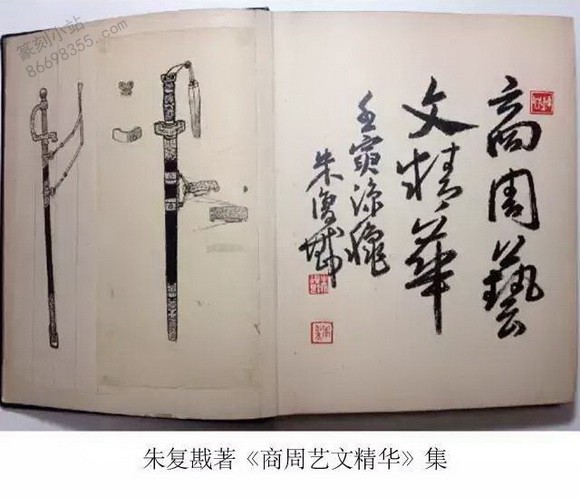 篆刻小站
86698355.com
商周藝
文精華
壬寅涼穐
朱復戡
朱复戡著《商周艺文精华》集